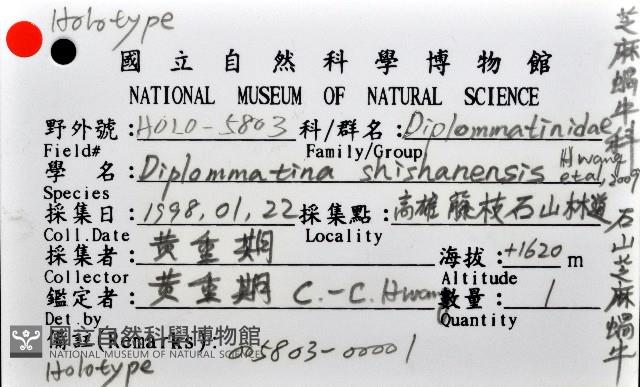 Holotype
國立自然科學博物館
NATIONAL MUSEUM OF NATURAL SCIENCE
野外號：HOLO-5803 科/群名：Diplommatinidae
Field# Family/Group
學名：Diplommatina shishanensis Hwang et al., 2009
Species
採集日：1998,01,22 採集點：高雄藤枝石山林道
Coll.Date Locality
採集者：黃重期 海拔：+1620 m
Collector Altitude
鑑定者：黃重期 C.-C. Hwang 數量：1
Det.by Quantity
備註(Remarks)：005803-00001
Holotype
芝麻蝸牛科 石山芝麻蝸牛
國立自然科學博物館
NATIONAL MUSEUM OF NATURAL SCIENCE